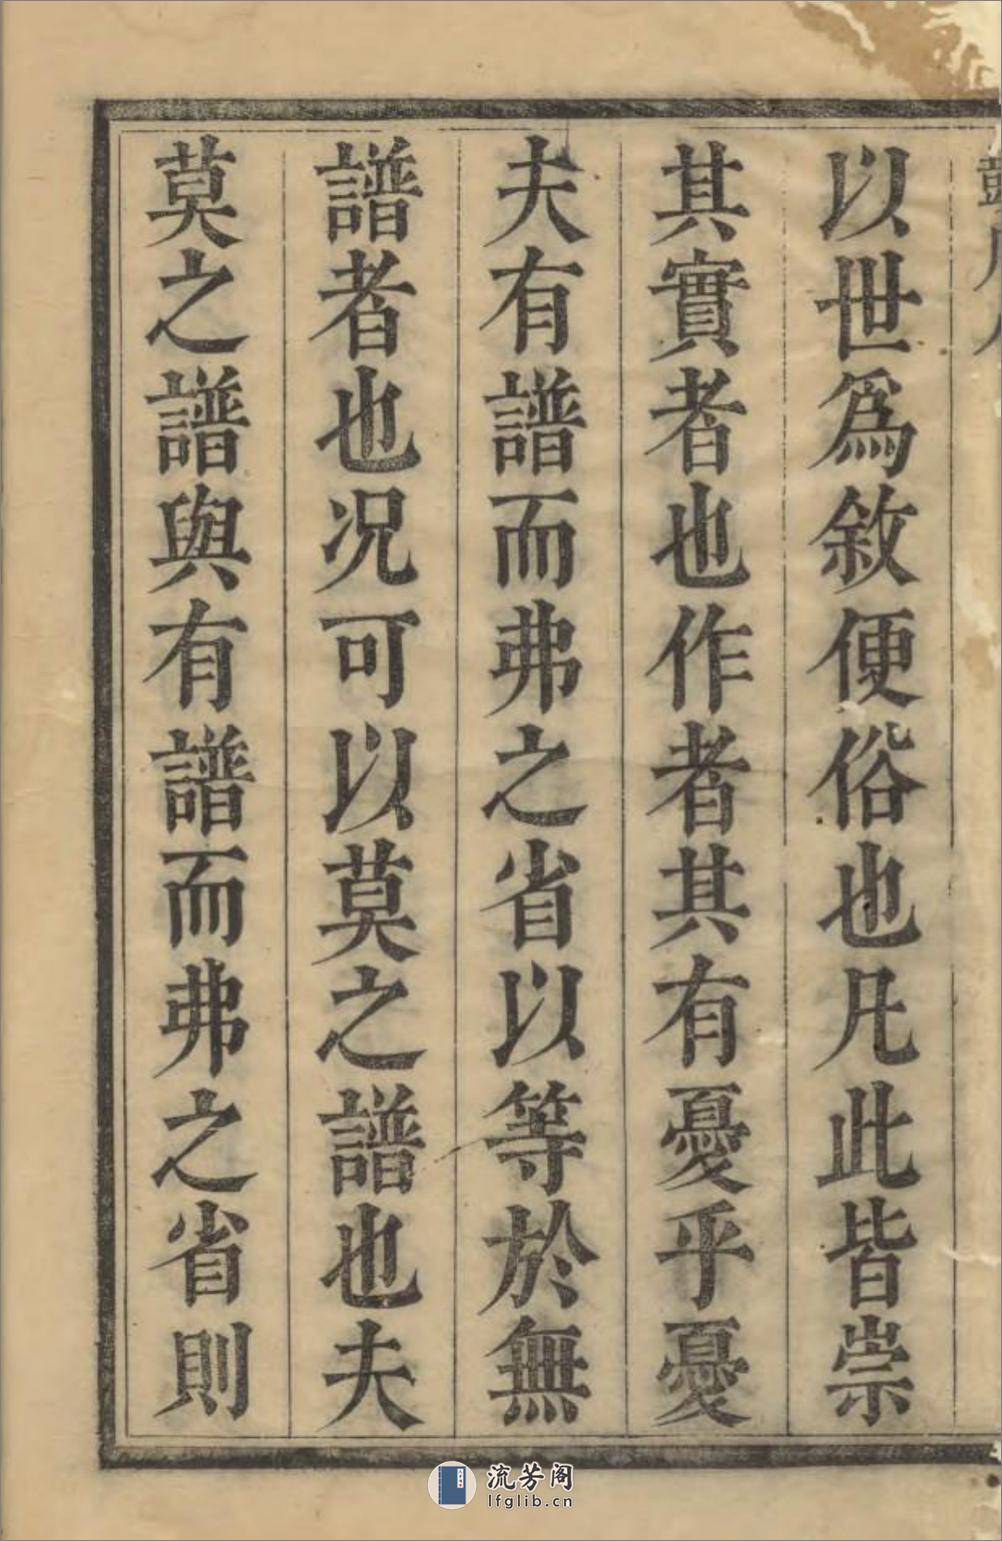 以世爲敘便俗也凡此皆崇
其實者也作者其有憂乎憂
夫有譜而弗之省以等於無
譜者也况可以莫之譜也夫
莫之譜與有譜而弗之省則
流芳阁
lfglib.cn